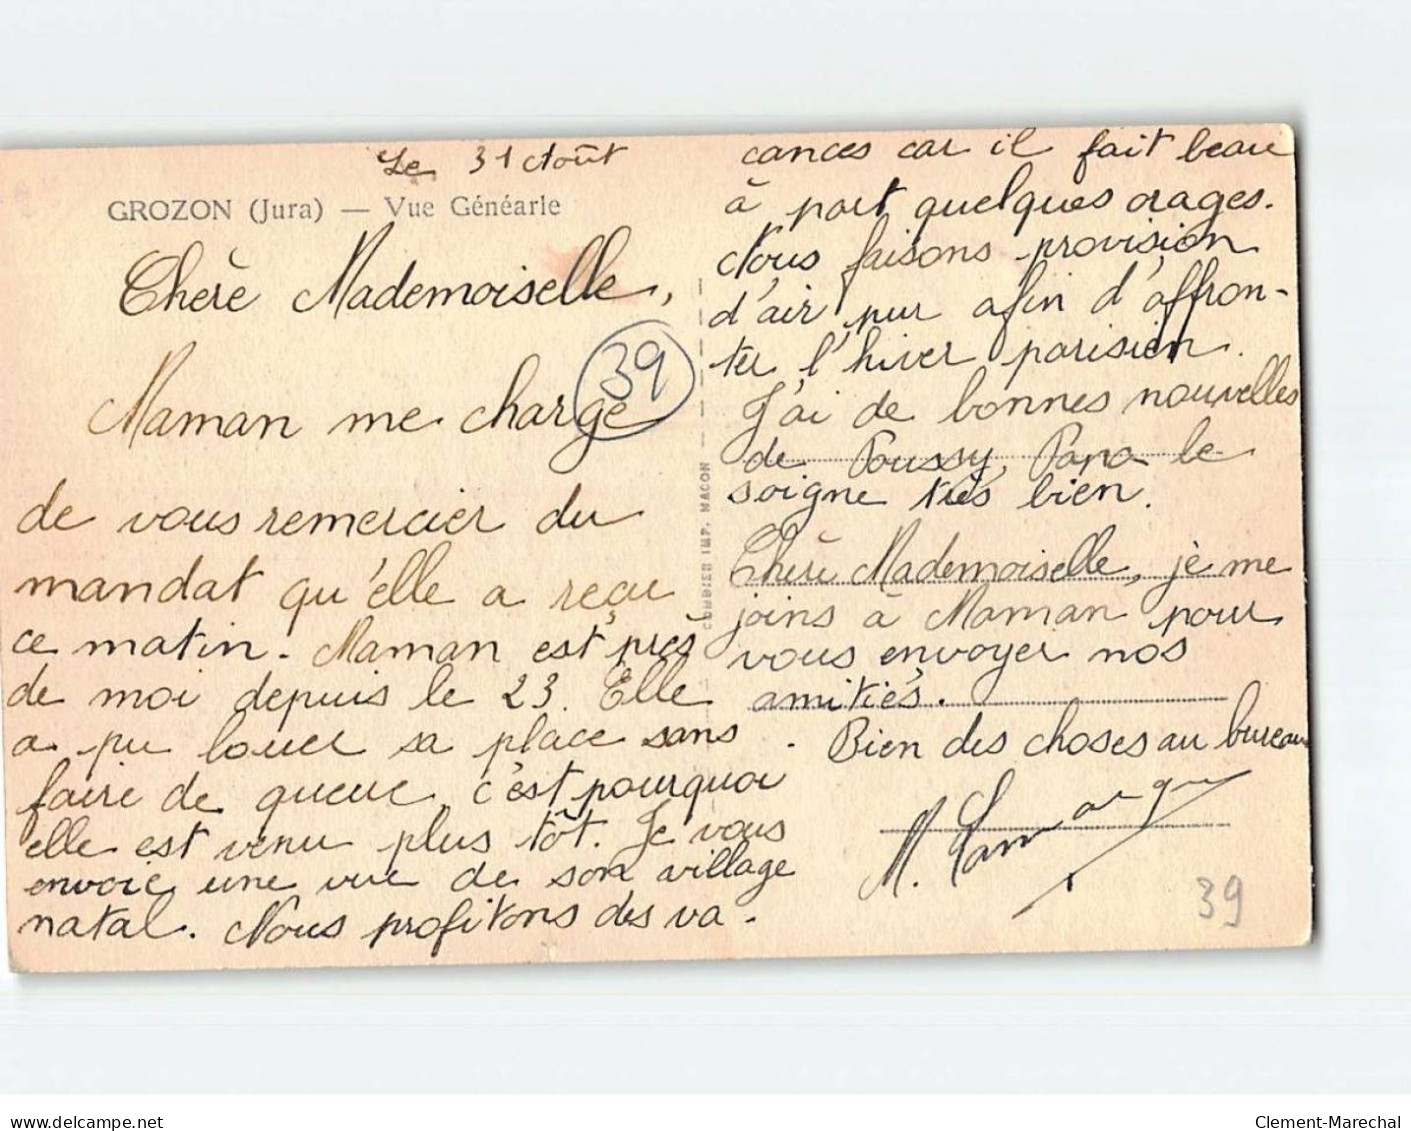 Le 31 Août
GROZON (Jura) — Vue Généarle
Chère Mademoiselle,
39
Maman me charge
de vous remercier du
mandat qu'elle a reçu
ce matin. Maman est près
de moi depuis le 23. Elle
a pu louer sa place sans
faire de queue, c'est pourquoi
elle est venu plus tôt. Je vous
envoie une vue de son village
natal. Nous profitons des va-
COMBIER IMP. MACON
cances car il fait beau
à part quelques orages.
Nous faisons provision
d'air pur afin d'affron-
ter l'hiver parisien.
J'ai de bonnes nouvelles
de Poussy, Papa le
soigne très bien.
Chère Mademoiselle, je me
joins à Maman pour
vous envoyer nos
amitiés.
Bien des choses au bureau
M.
39
delcampe.net
Clement-Marechal